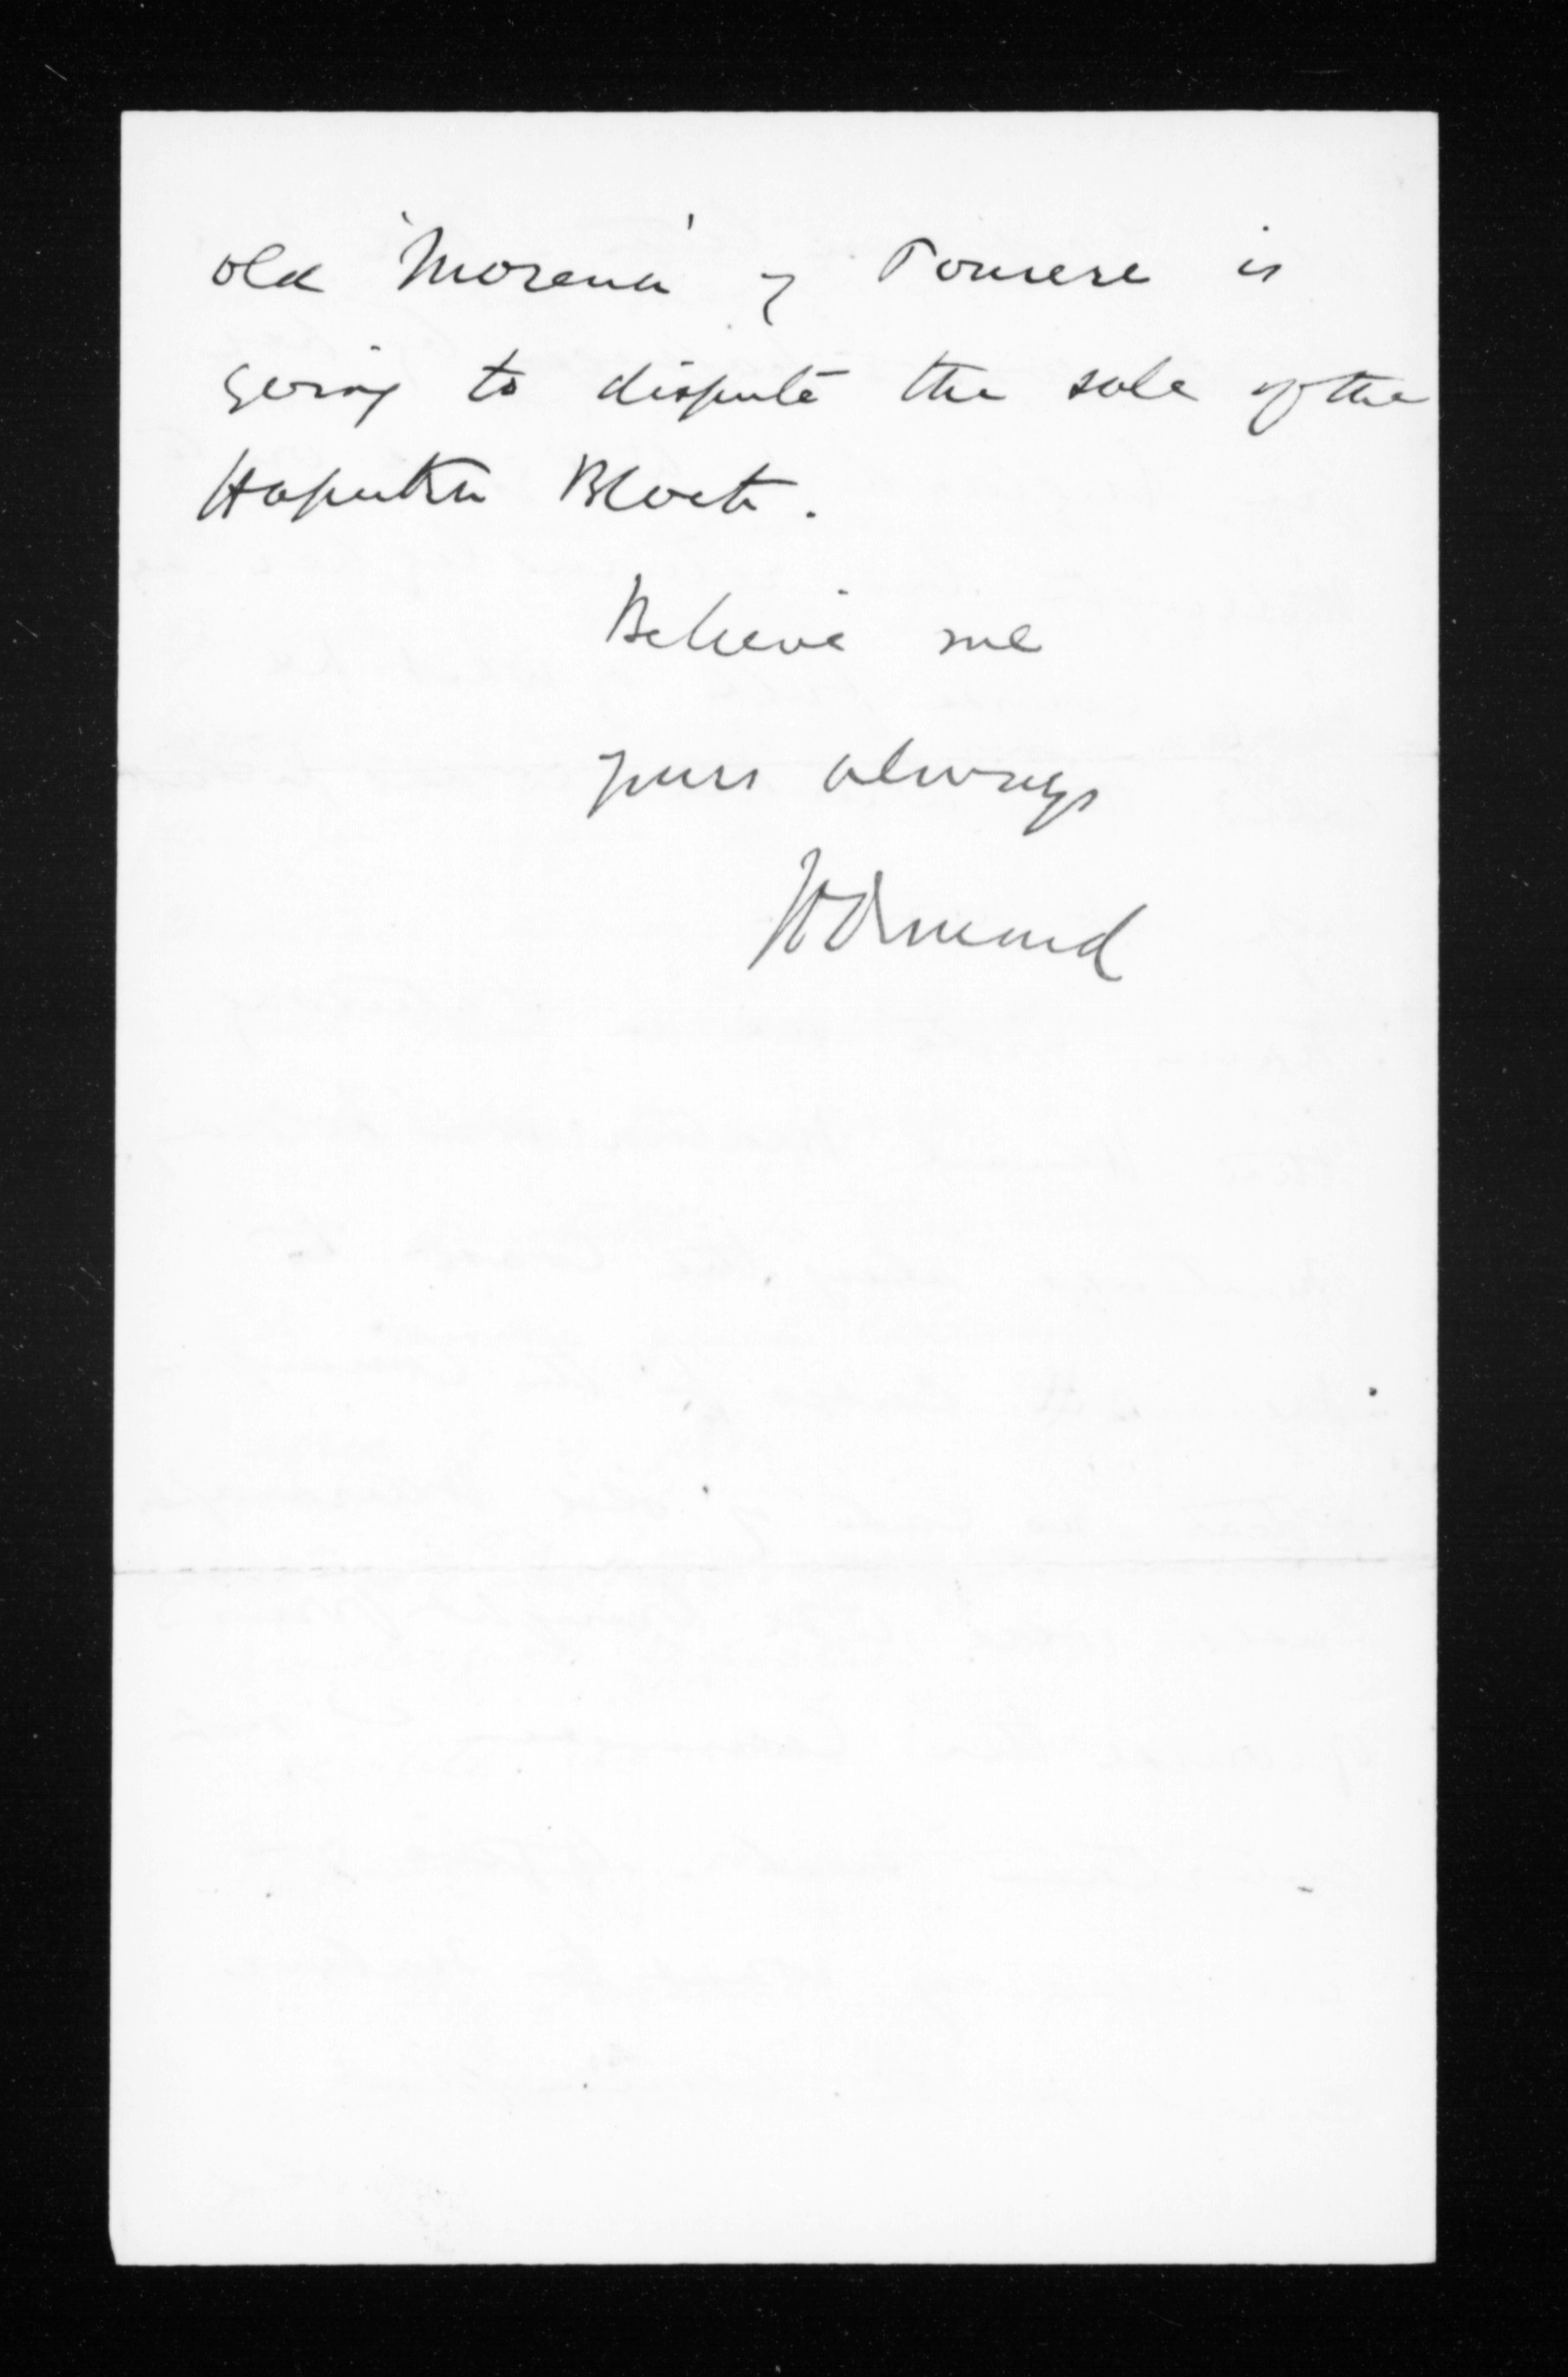 old 'Morena' of Pourere is
going to dispute the sale of the
Haputa Block.
Believe me
yours always
JDOrmond